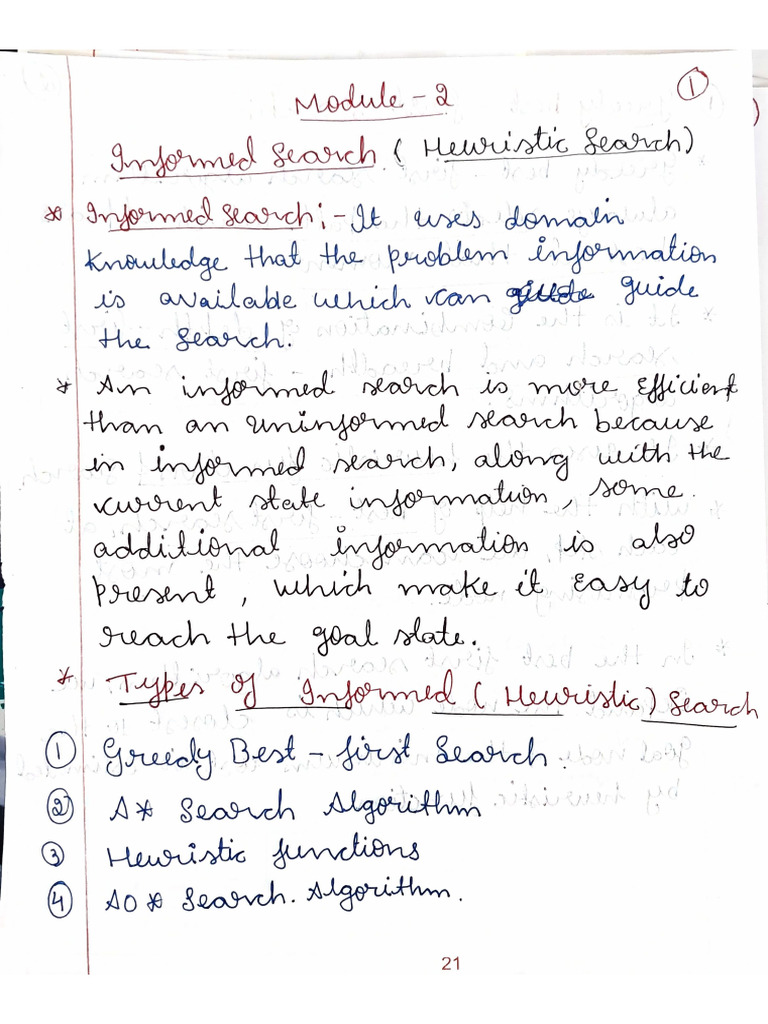 ①
Module - 2
Informed Search ( Heuristic Search)
* Informed Search :- It uses domain
knowledge that the problem information
is available which can guide
the search.
* An informed search is more efficient
than an uninformed search because
in informed search, along with the
current state information, some
additional information is also
present, which make it easy to
reach the goal state.
* Types of Informed (Heuristic) Search
① Greedy Best - first Search.
② A* Search Algorithm
③ Heuristic functions
④ AO* Search. Algorithm.
21